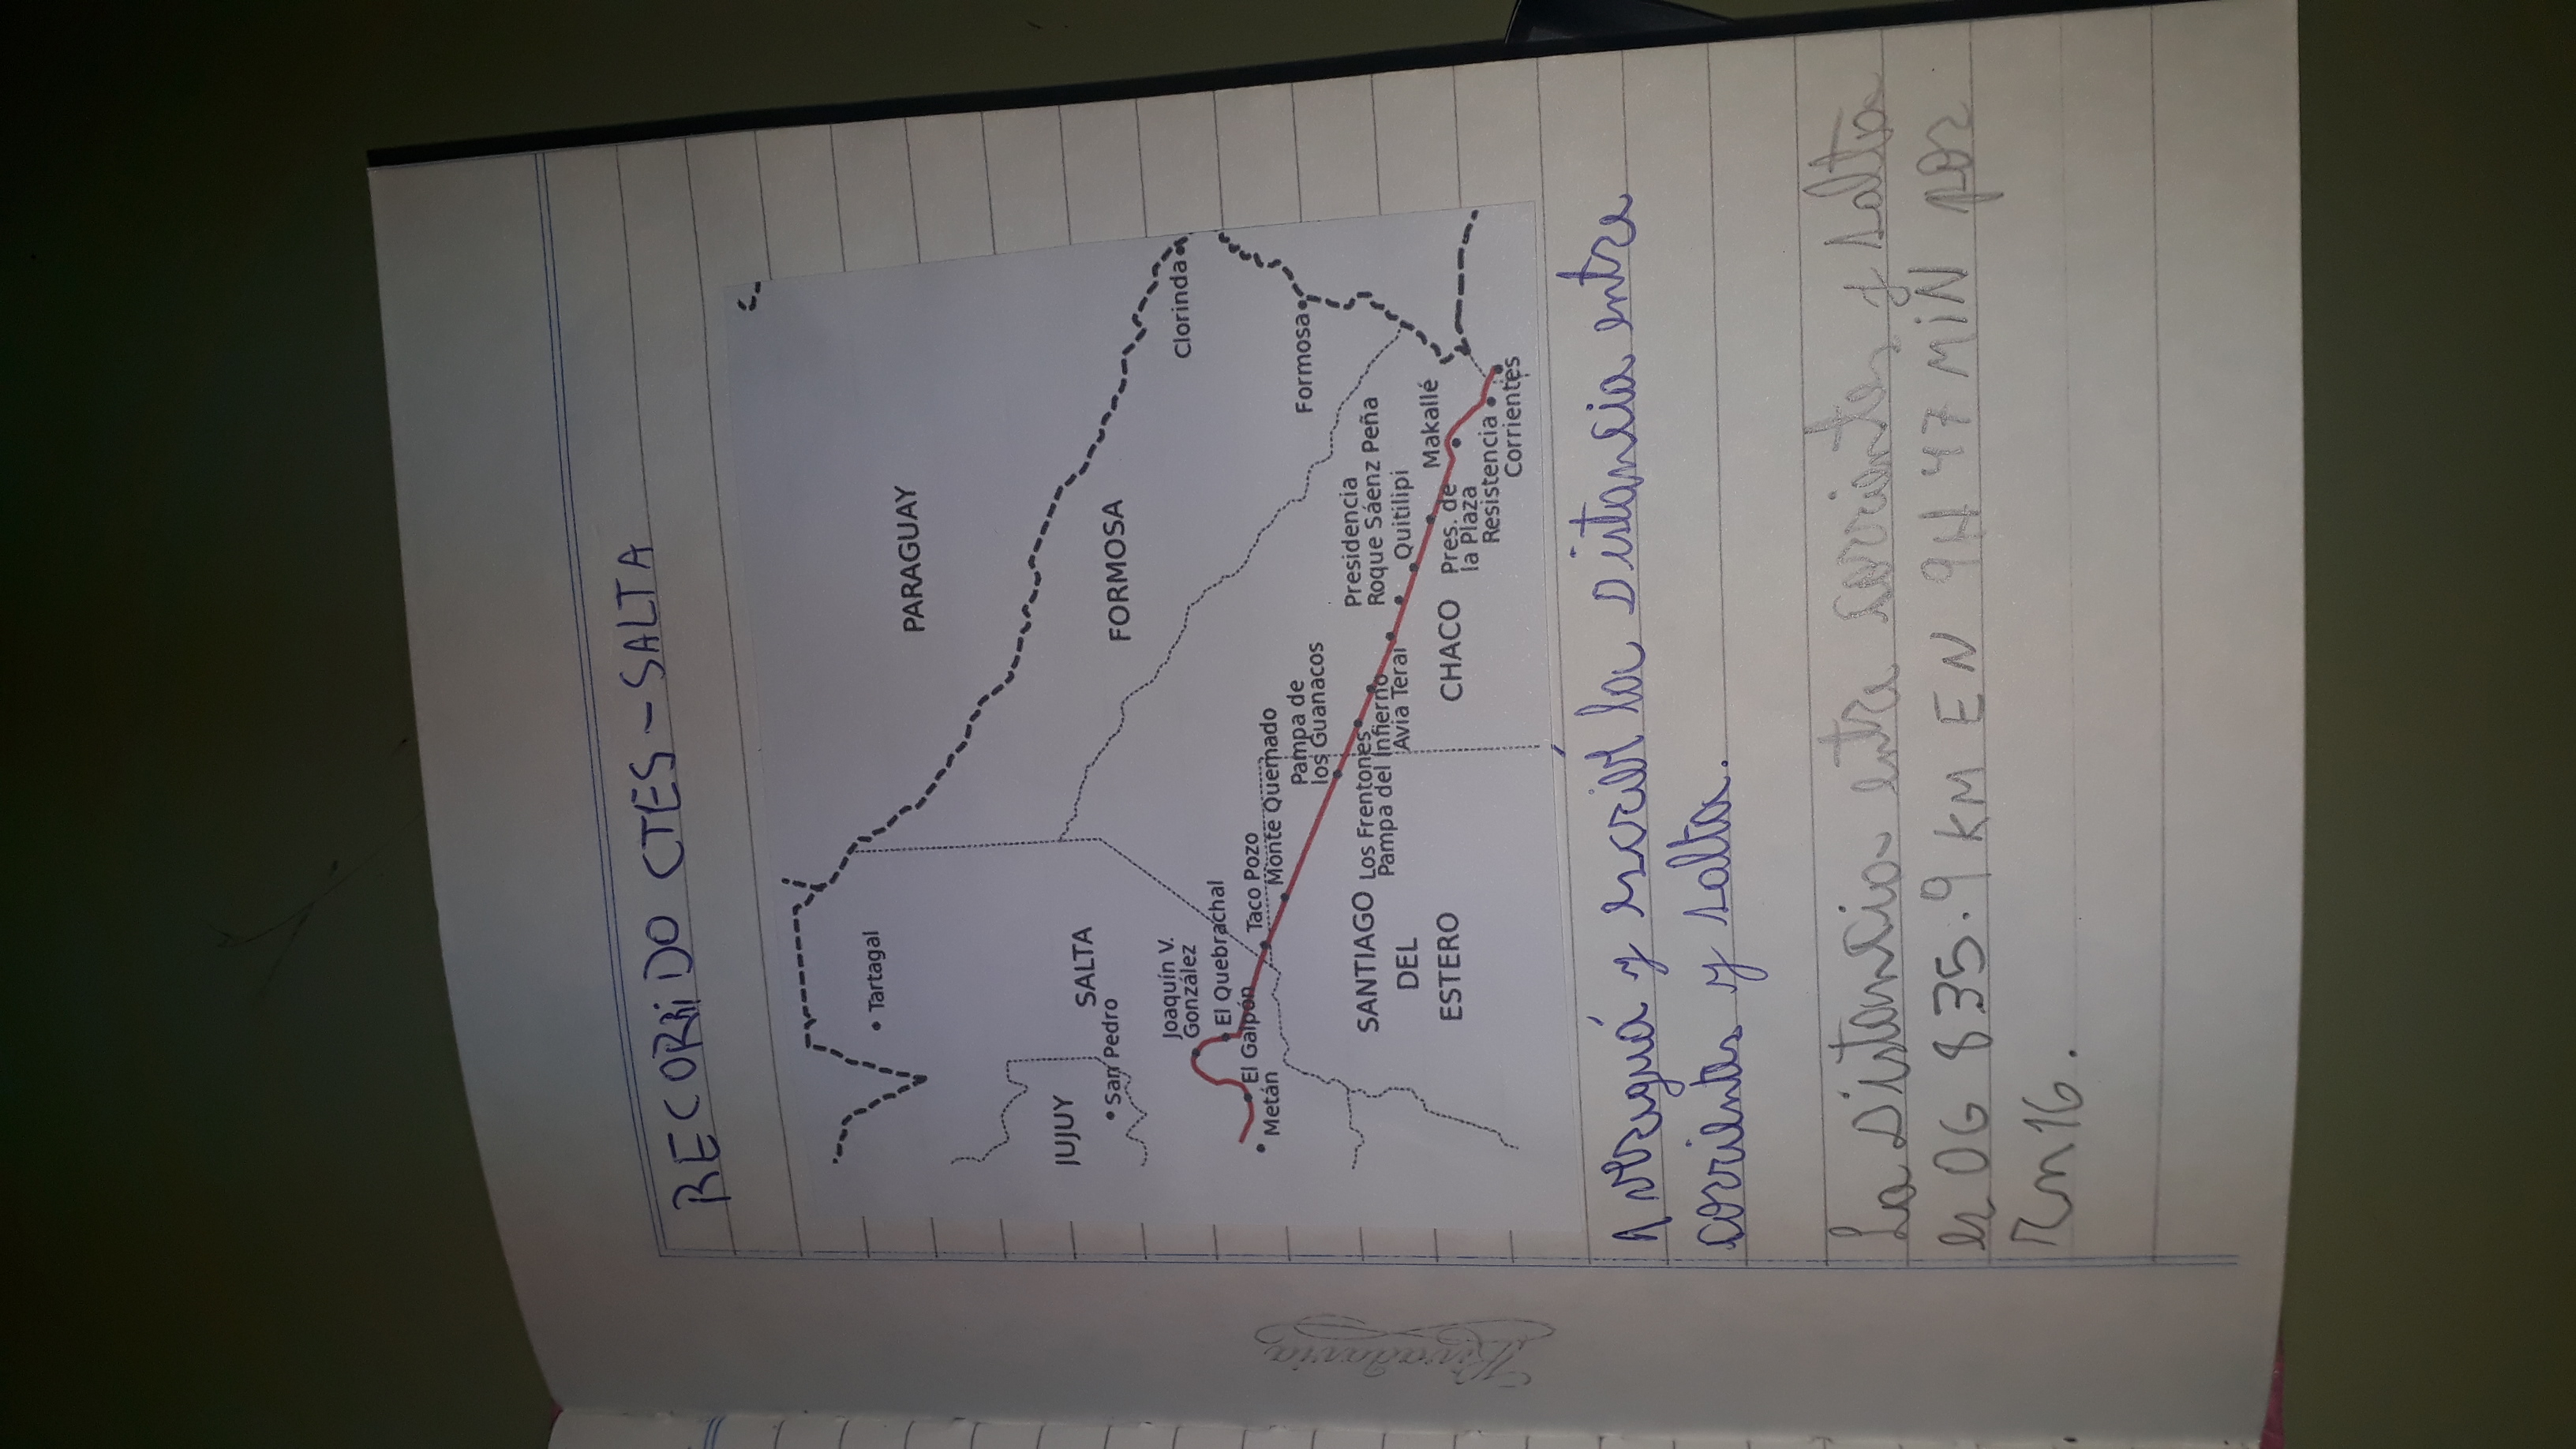 RECORRIDO CTES - SALTA
PARAGUAY
Tartagal
FORMOSA
Clorinda
SALTA
JUJUY
San Pedro
Formosa
Joaquín V.
González
El Quebrachal
El Galpón
Metán
Taco Pozo
Monte Quemado
Pampa de
los Guanacos
Presidencia
Roque Sáenz Peña
Quitilipi
Makallé
SANTIAGO
DEL
ESTERO
Los Frentones
Pampa del Infierno
Avia Teral
CHACO
Pres. de
la Plaza
Resistencia
Corrientes
Averiguá y escribí la distancia entre
corrientes y salta.
La Distancia entre corrientes y salta
es DG 835.9 KM EN 9H 47 MIN por
Rn16.
Rivadavia